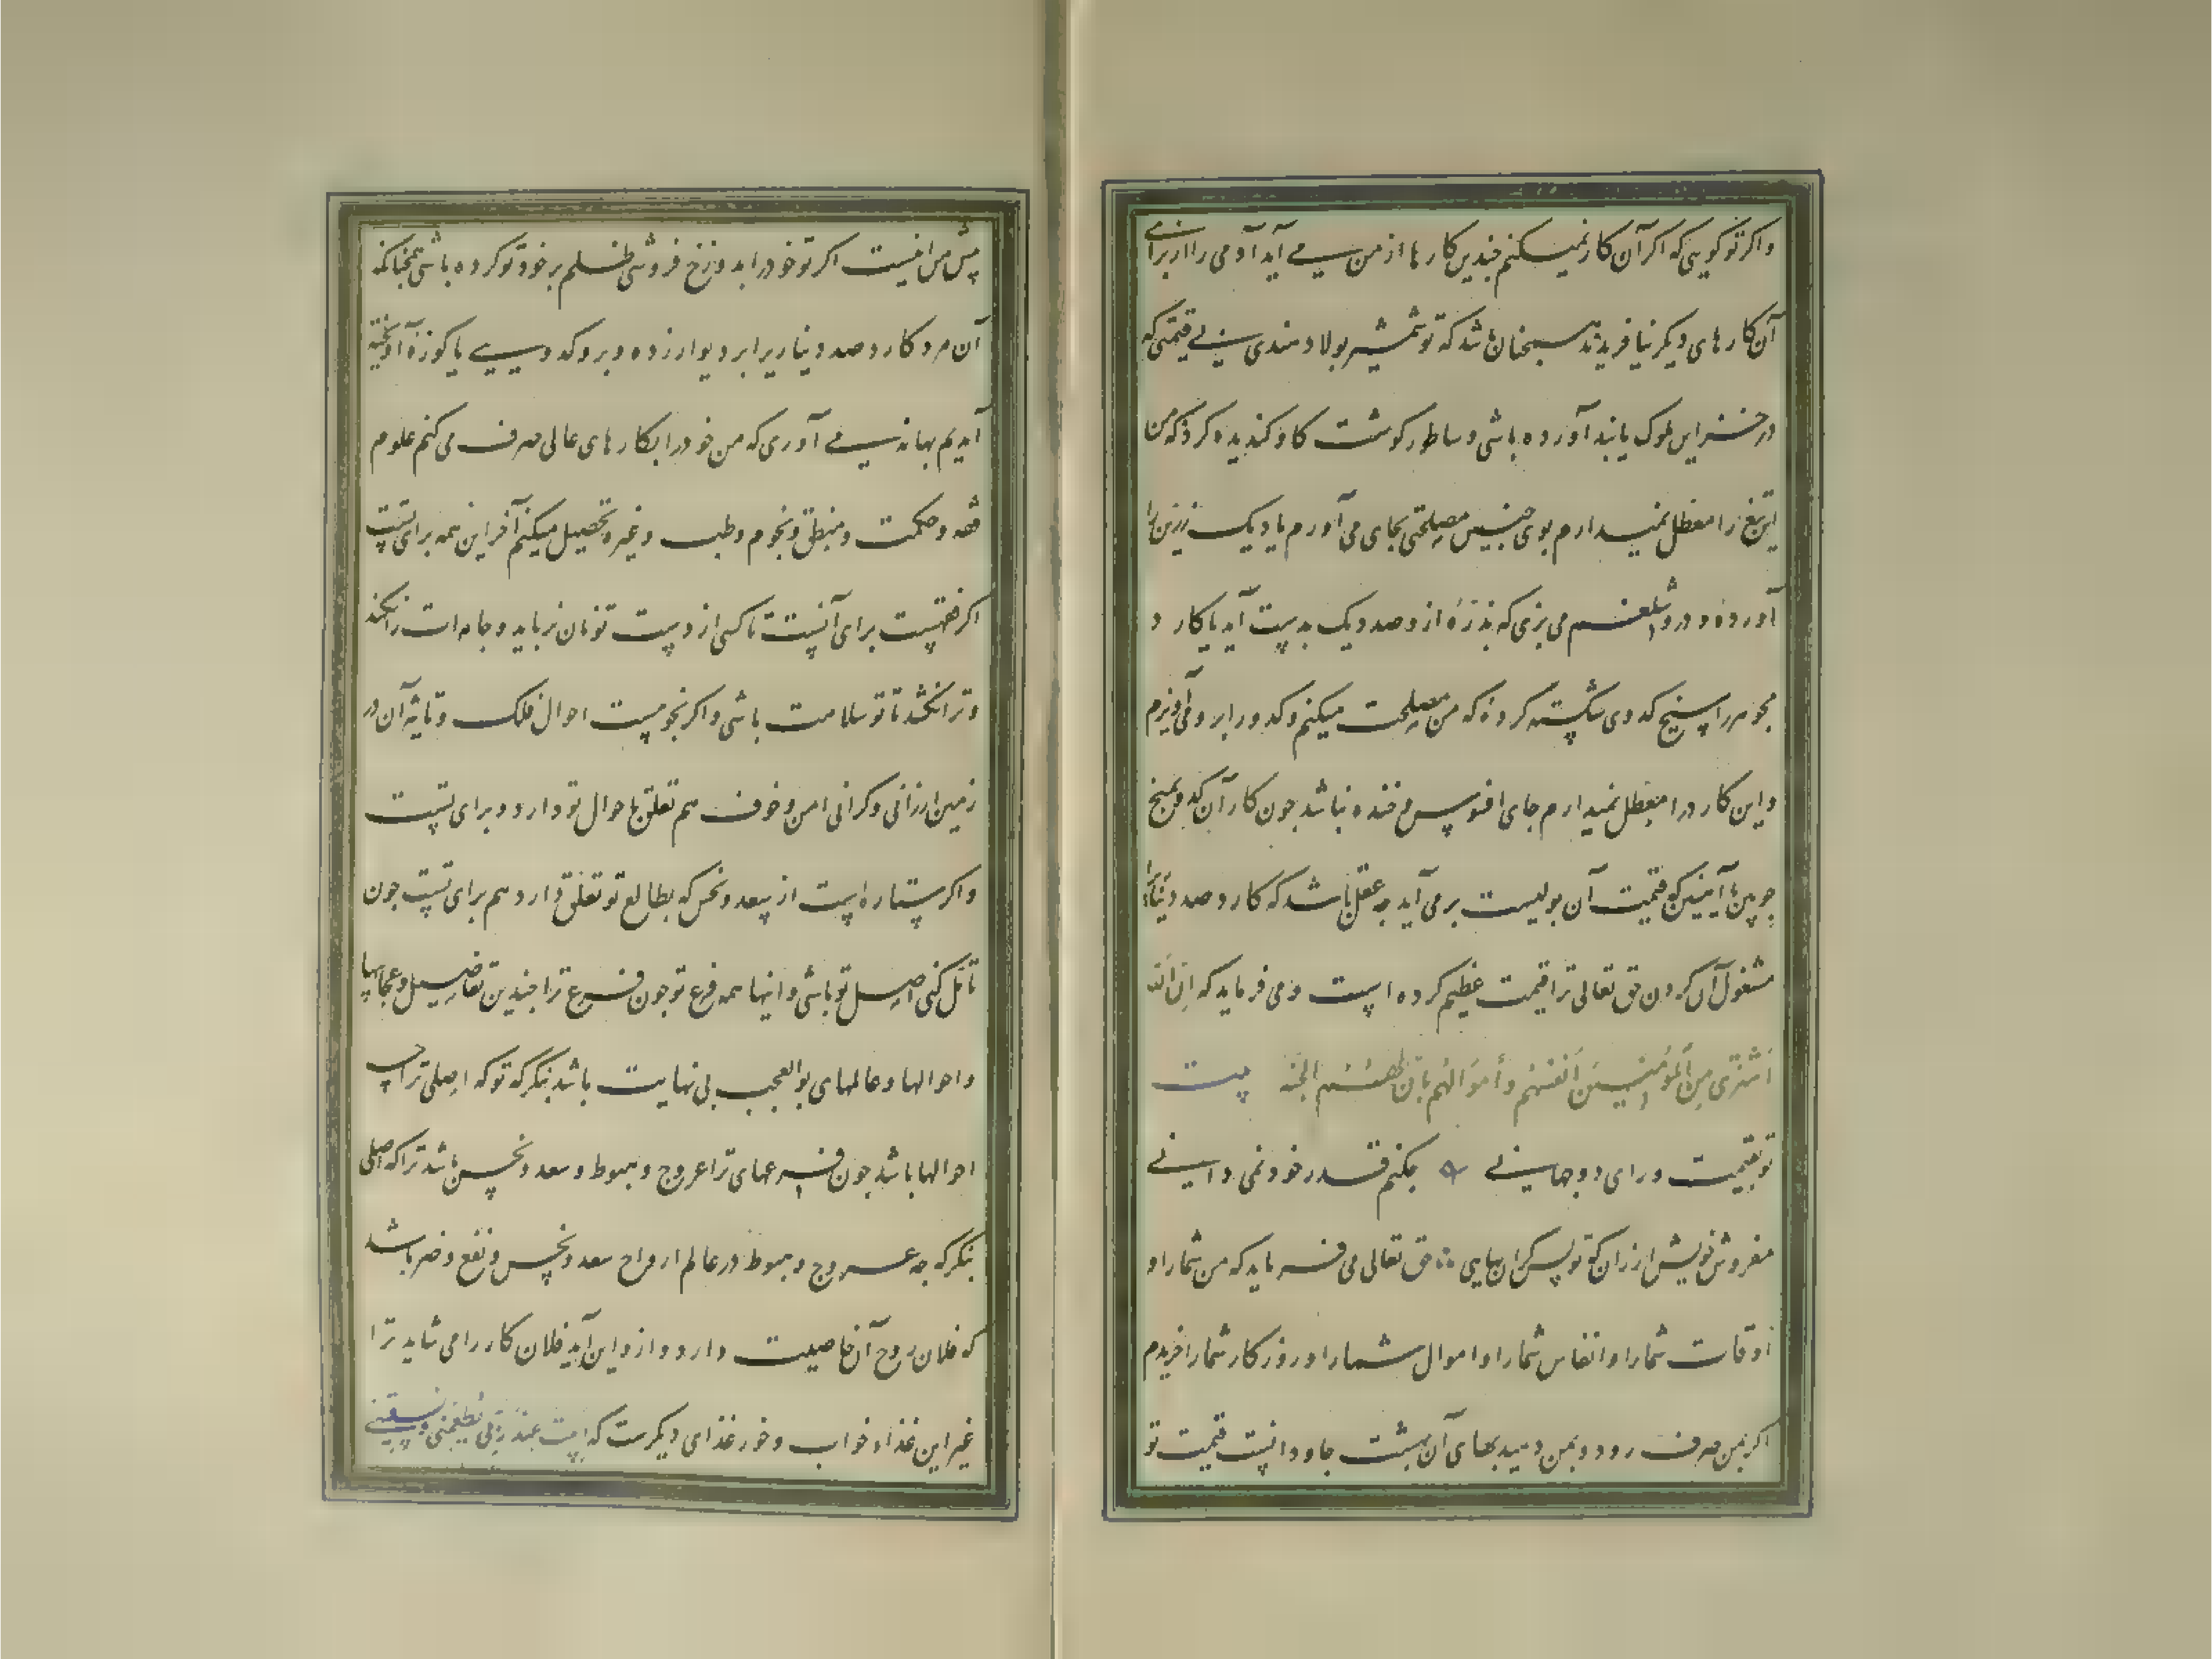 واکر تو کویی که اکر آن کار نمیکنم چندین کارها از من می آید آدمی را از برای
آن کارهای دیکر نیافریدند همچنان باشد که تو شمشیر پولاد هندی بی قیمتی که
در خزاین ملوک یابند آورده باشی و ساطور کوشت کاو کندیده کرده که من
این تیغ را معطل نمیدارم بوی چنین مصلحتی بجای می آورم یا دیک زرین را
آورده و درو شلغم می پزی که بذره از و صد دیک بدست آید یا کارد
مجوهر را میخ کدوی شکسته کرده که من مصلحت میکنم و کدو را برو می آویزم
و این کارد را معطل نمیدارم جای افسوس و خنده نباشد چون کار آن کدو بمیخ
چوبین یا آهنین که قیمت آن بولیست برمی آید چه عقل باشد که کارد صد دیناری را
مشغول آن کردن حق تعالی ترا قیمت عظیم کرده است و می فرماید که إن الله
اشتری من المؤمنین أنفسهم وأموالهم بأن لهم الجنة بیت
تو بقیمت ورای دو جهانی چکنم قدر خود نمی دانی
مفروش خویش ارزان که تو بس کران بهایی حق تعالی می فرماید که من شما را و
اوقات شما را و انفاس شما را و اموال شما را و روزکار شما را خریدم
اکر بمن صرف رود و بمن دهید بهای آن بهشت جاودانیست قیمت تو
پیش من اینست اکر تو خود را بدوزخ فروشی ظلم بر خود تو کرده باشی همچنانکه
آن مرد کارد صد دینار برابر دیوار زده و برو کدویی یا کوزه آویخته
آمدیم بهانه می آوری که من خود را بکارهای عالی صرف می کنم علوم
فقه و حکمت و منطق و نجوم و طب و غیره تحصیل میکنم آخر این همه برای تست
اکر فقهست برای آنست تا کسی از دست تو نان نرباید و جامه ات را نکند
و ترا نکشد تا تو سلامت باشی و اکر نجومست احوال فلک و تاثیر آن در
زمین ارزانی و کرانی امن و خوف هم تعلق باحوال تو دارد و برای تست
و اکر ستاره است از سعد و نحس که بطالع تو تعلق دارد هم برای تست چون
تامل کنی اصل تو باشی و اینها همه فرع تو چون فرع ترا چندین تفاصیل و عجایبها
و احوالها و عالمهای بوالعجب بی نهایت باشد بنکر که تو که اصلی ترا چه
احوالها باشد چون فرعهای ترا عروج و هبوط و سعد و نحس باشد ترا که اصلی
بنکر که چه عروج و هبوط در عالم ارواح سعد و نحس و نفع و ضر باشد
که فلان روح آن خاصیت دارد و ازو این آید فلان کار را می شاید ترا
غیر این غذاء خواب و خور غذای دیکرست که ابیت عند ربی یطعمنی و یسقینی